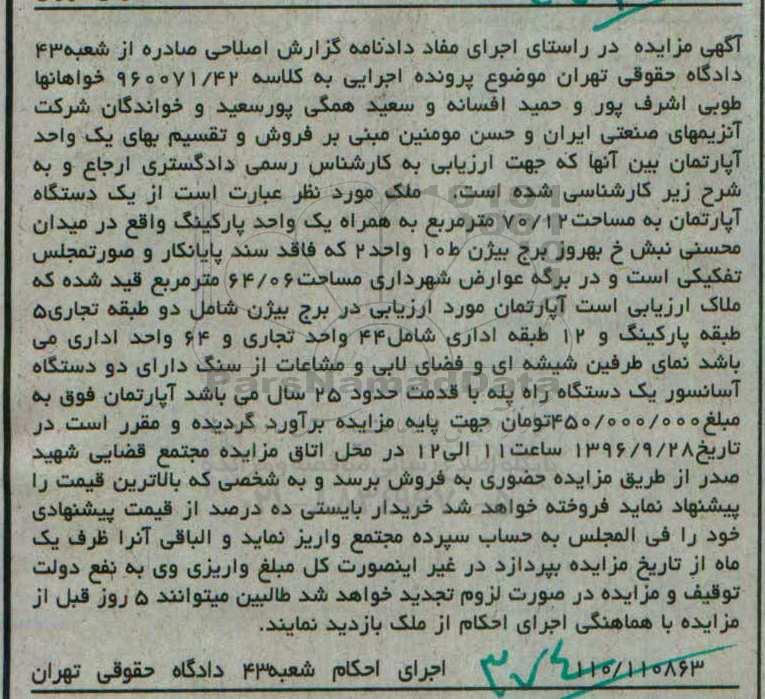 آگهی مزایده در راستای اجرای مفاد دادنامه گزارش اصلاحی صادره از شعبه۴۳
دادگاه حقوقی تهران موضوع پرونده اجرایی به کلاسه ۹۶۰۰۷۱/۴۲ خواهانها
طوبی اشرف پور و حمید افسانه و سعید همگی پورسعید و خواندگان شرکت
آنزیمهای صنعتی ایران و حسن مومنین مبنی بر فروش و تقسیم بهای یک واحد
آپارتمان بین آنها که جهت ارزیابی به کارشناس رسمی دادگستری ارجاع و به
شرح زیر کارشناسی شده است. ملک مورد نظر عبارت است از یک دستگاه
آپارتمان به مساحت۷۰/۱۲ مترمربع به همراه یک واحد پارکینگ واقع در میدان
محسنی نبش خ بهروز برج بیژن ط۱۰ واحد۲ که فاقد سند پایانکار و صورتمجلس
تفکیکی است و در برگه عوارض شهرداری مساحت۶۴/۰۶ مترمربع قید شده که
ملاک ارزیابی است آپارتمان مورد ارزیابی در برج بیژن شامل دو طبقه تجاری۵
طبقه پارکینگ و ۱۲ طبقه اداری شامل۴۴ واحد تجاری و ۶۴ واحد اداری می
باشد نمای طرفین شیشه ای و فضای لابی و مشاعات از سنگ دارای دو دستگاه
آسانسور یک دستگاه راه پله با قدمت حدود ۲۵ سال می باشد آپارتمان فوق به
مبلغ۴۵۰/۰۰۰/۰۰۰تومان جهت پایه مزایده برآورد گردیده و مقرر است در
تاریخ۱۳۹۶/۹/۲۸ ساعت۱۱ الی۱۲ در محل اتاق مزایده مجتمع قضایی شهید
صدر از طریق مزایده حضوری به فروش برسد و به شخصی که بالاترین قیمت را
پیشنهاد نماید فروخته خواهد شد خریدار بایستی ده درصد از قیمت پیشنهادی
خود را فی المجلس به حساب سپرده مجتمع واریز نماید و الباقی آنرا ظرف یک
ماه از تاریخ مزایده بپردازد در غیر اینصورت کل مبلغ واریزی وی به نفع دولت
توقیف و مزایده در صورت لزوم تجدید خواهد شد طالبین میتوانند ۵ روز قبل از
مزایده با هماهنگی اجرای احکام از ملک بازدید نمایند.
۱۱۰/۱۱۰۸۶۳ اجرای احکام شعبه۴۳ دادگاه حقوقی تهران
۳۷۴
ParsNamadData